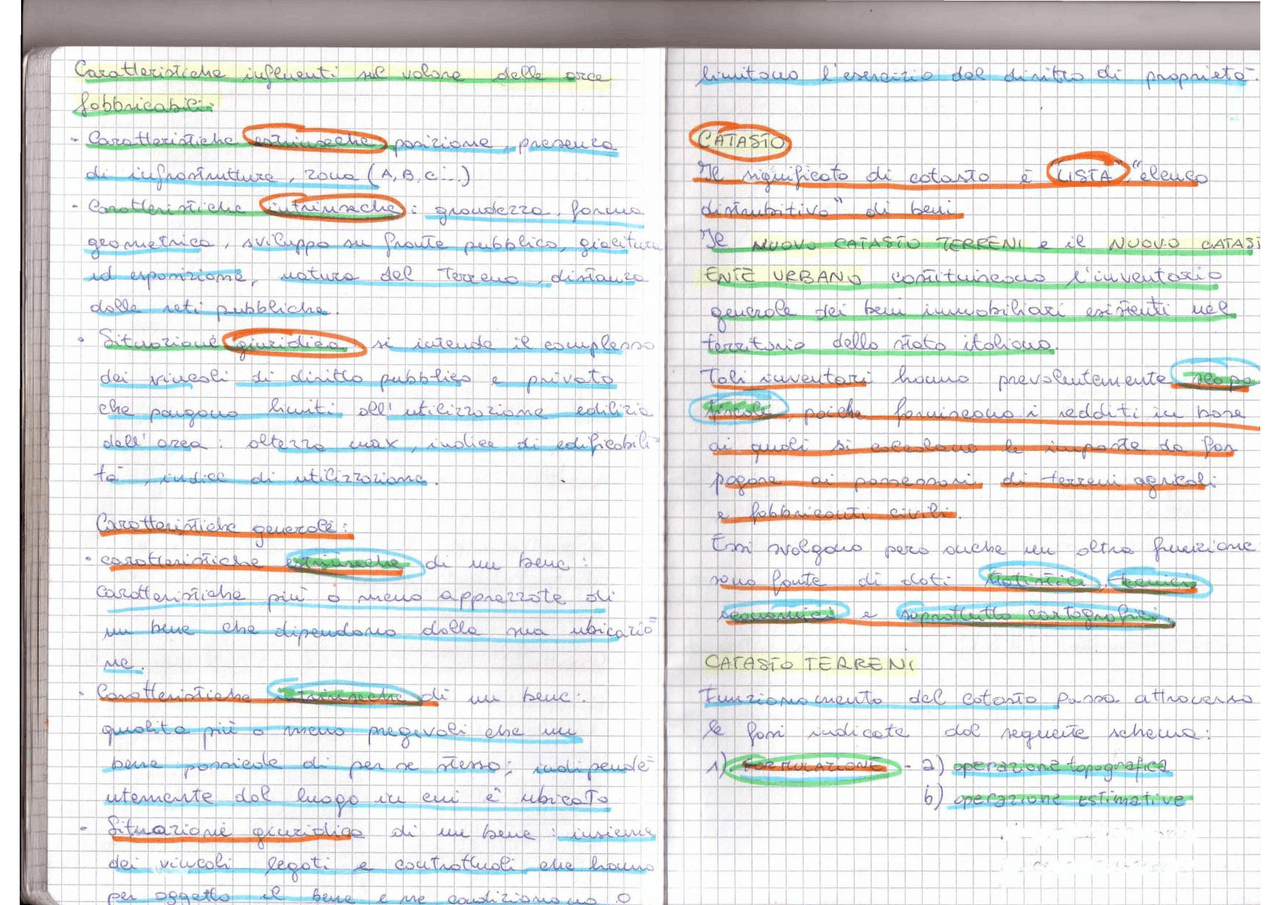 Caratteristiche influenti sul valore delle aree
fabbricabili:
- Caratteristiche estrinseche posizione, presenza
di infrastrutture, zona (A, B, C...)
- Caratteristiche intrinseche: grandezza, forma
geometrica, sviluppo su fronte pubblico, giacitura
ed esposizione, natura del terreno, distanza
dalle reti pubbliche.
- Situazione giuridica si intende il complesso
dei vincoli di diritto pubblico e privato
che pongono limiti all'utilizzazione edilizia
dell'area: altezza max, indice di edificabili-
tà, indice di utilizzazione.
Caratteristiche generale:
- caratteristiche estrinseche di un bene:
caratteristiche più o meno apprezzate di
un bene che dipendono dalla sua ubicazio-
ne.
- Caratteristiche intrinseche di un bene:
qualità più o meno pregevoli che un
bene possiede di per se stesso; indipende-
ntemente dal luogo in cui è ubicato
- Situazione giuridica di un bene: insieme
dei vincoli legati e contrattuali che hanno
per oggetto il bene e ne condizionano o
limitano l'esercizio del diritto di proprietà.
CATASTO
Il significato di catasto è LISTA "elenco
distributivo" di beni
Il NUOVO CATASTO TERRENI e il NUOVO CATAS
ENTE URBANO constituiscono l'inventario
generale dei beni immobiliari esistenti nel
territorio dello stato italiano.
Tali inventari hanno prevalentemente scopo
fiscale, poiche forniscono i redditi in base
ai quali si calcolano le imposte da far
pagare ai possessori di terreni agricoli
e fabbricanti civili.
Essi svolgono pero anche un altra funzione:
sono fonte di dati statistici, tecnici
economici e soprattutto cartografici
CATASTO TERRENI
Funzionamento del catasto passa attraverso
le fasi indicate dal seguente schema:
1) FORMULAZIONE - a) operazione topografica
b) operazione estimative